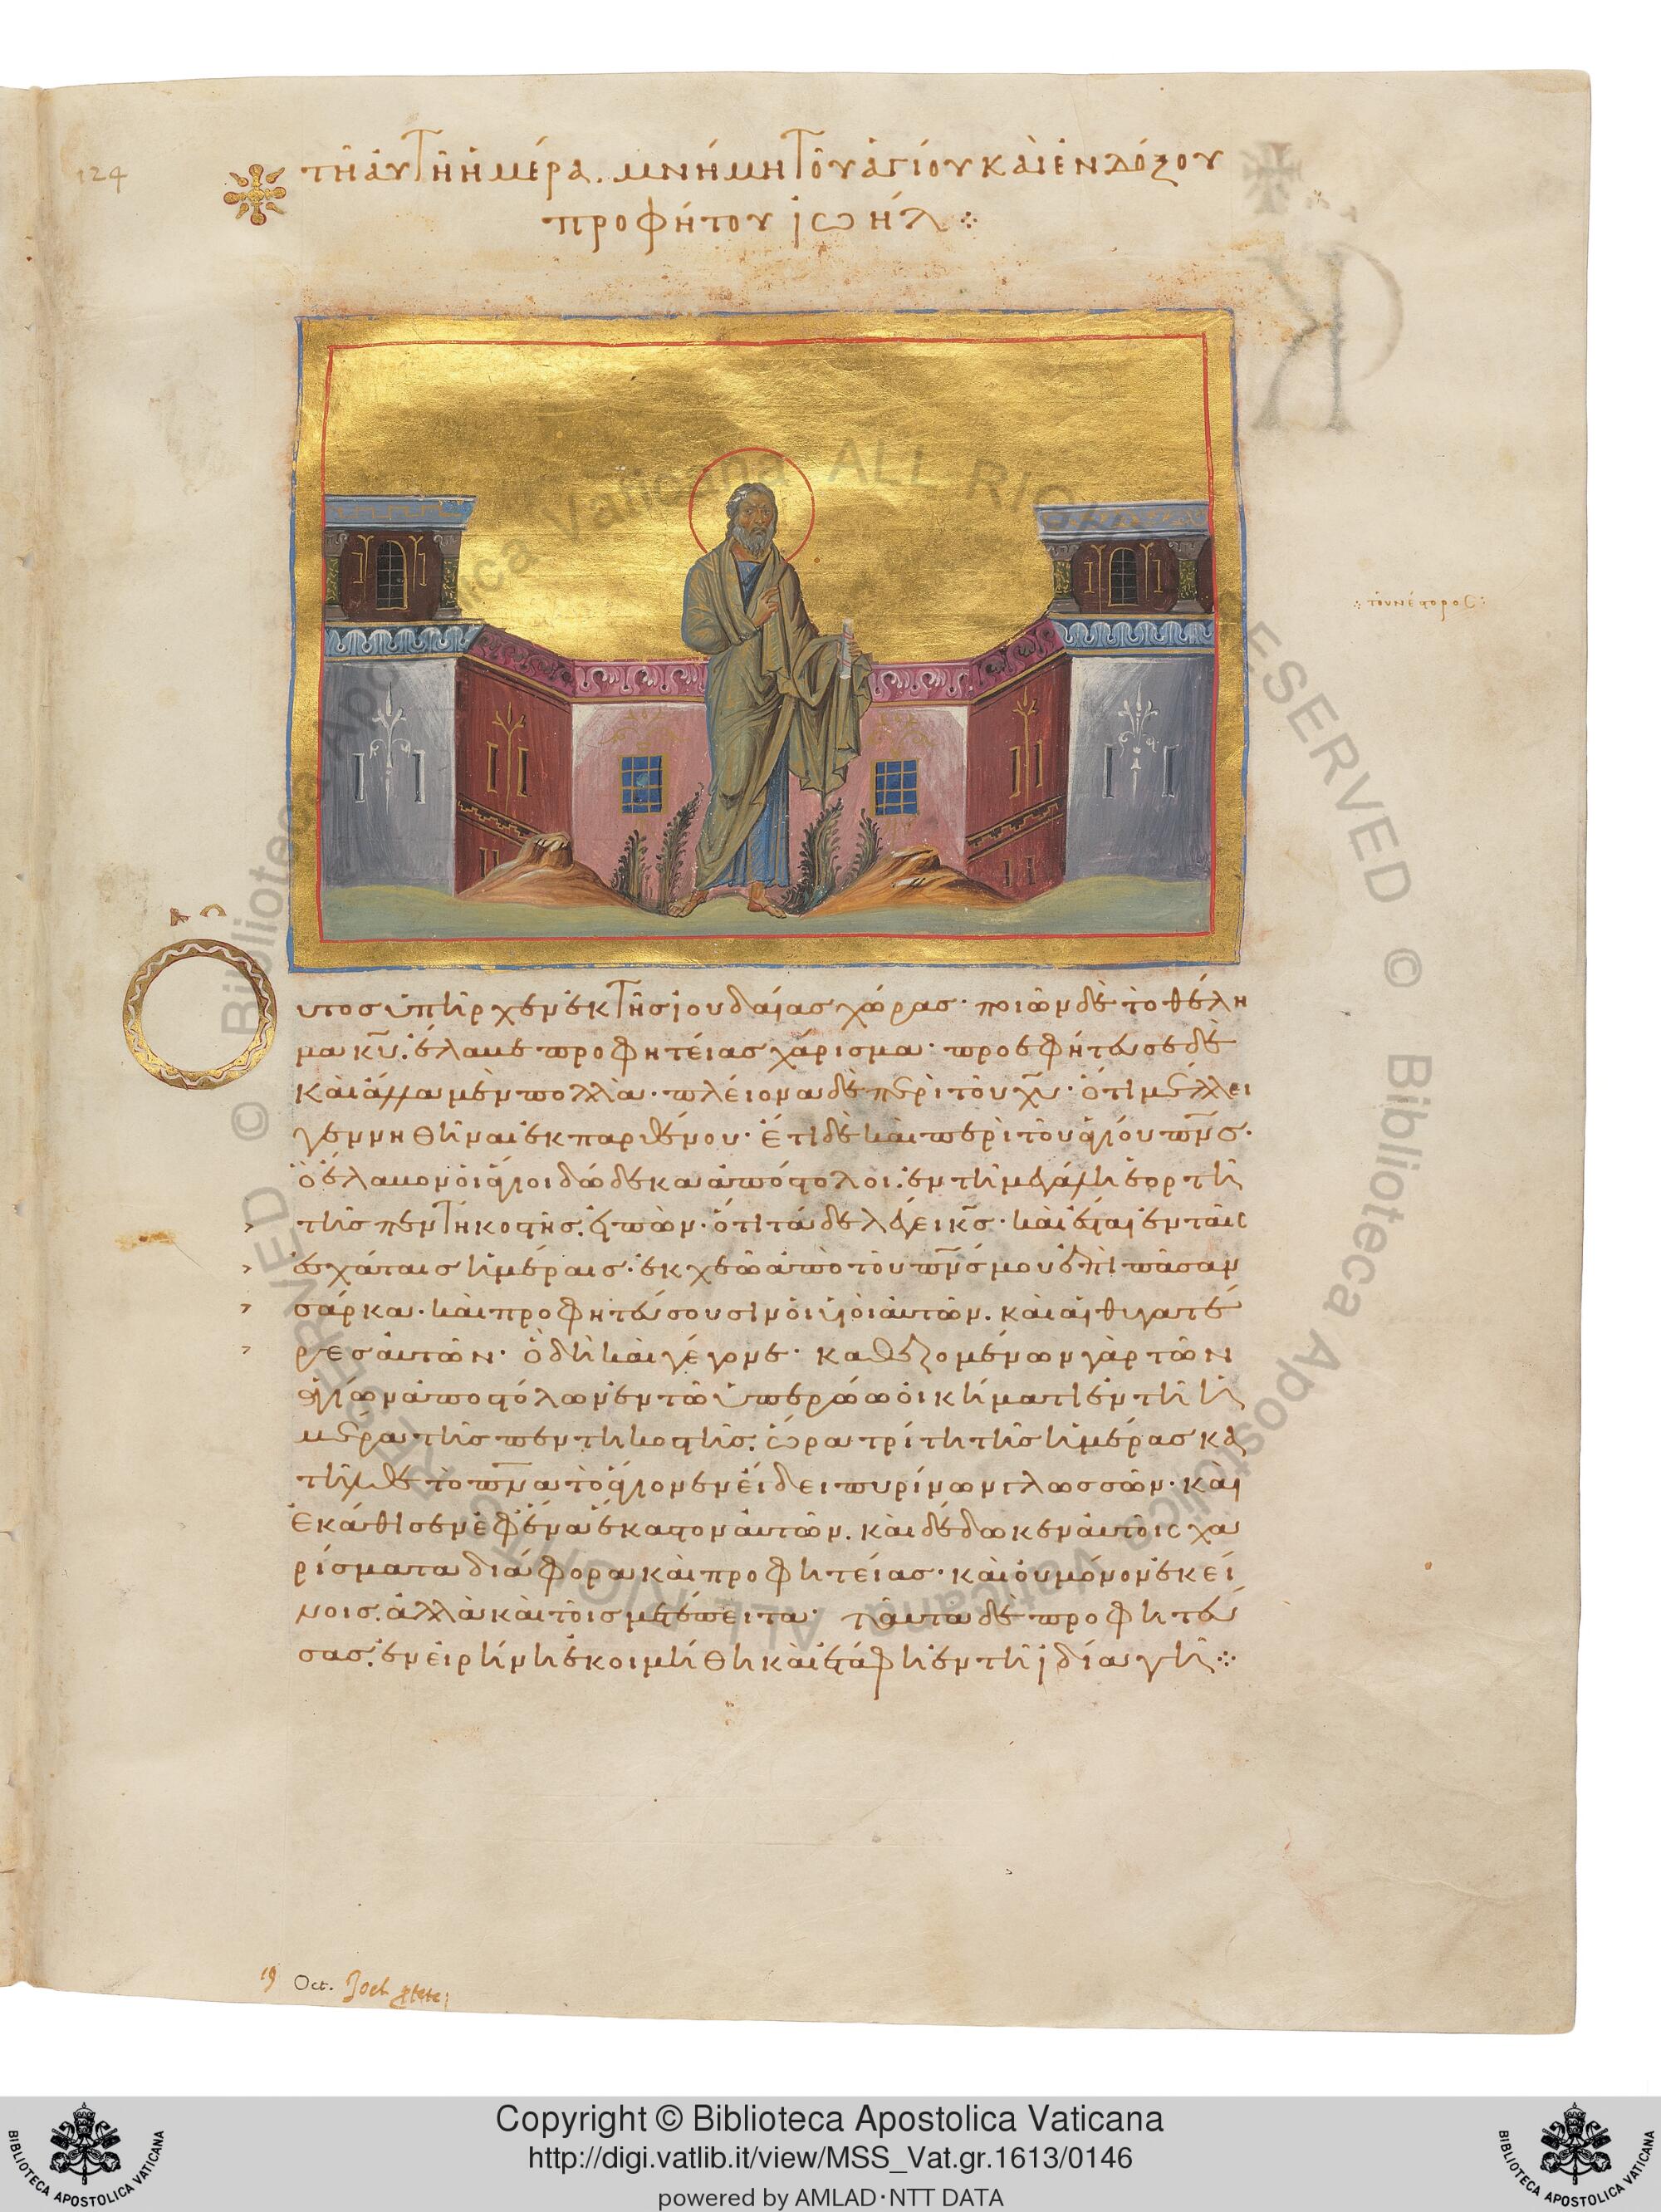 124
τῆ αὐτῆ ἡμέρα. μνήμη τοῦ ἁγίου καὶ ἐνδόξου
προφήτου ἰωήλ
τοῦ νέστορος
Οὗτος ὑπῆρχεν ἐκ τῆς ἰουδαίας χώρας· ποιῶν δὲ τὸ θέλη
μα κυ. ἔλαβε προφητείας χάρισμα· προεφήτευσε δὲ
καὶ ἄλλα μὲν πολλὰ· πλείονα δὲ περὶ τοῦ χυ· ὅτι μέλλει
γεννηθῆναι ἐκ παρθένου· ἔτι δὲ καὶ περὶ τοῦ ἁγίου πνς·
ὃ ἔλαβον οἱ ἅγιοι δώδεκα ἀπόστολοι. ἐν τῆ μεγάλη ἑορτῆ
τῆς πεντηκοστῆς. εἰπὼν· ὅτι τάδε λέγει κς· καὶ ἔσται ἐν ταῖς
ἐσχάταις ἡμέραις· ἐκχεῶ ἀπὸ τοῦ πνς μου ἐπὶ πᾶσαν
σάρκα· καὶ προφητεύσουσιν οἱ υἱοὶ αὐτῶν. καὶ αἱ θυγατέ
ρες αὐτῶν· ὃ δὴ καὶ γέγονε· καθεζομένων γὰρ τῶν
ἁγίων ἀποστόλων ἐν τῶ ὑπερώω οἰκήματι ἐν τῆ ἡ
μέρα τῆς πεντηκοστῆς. ὥρα τρίτη τῆς ἡμέρας κα
τῆλθε τὸ πνα τὸ ἅγιον ἐν εἴδει πυρίνων γλωσσῶν· καὶ
ἐκάθισεν ἐφ' ἕνα ἕκαστον αὐτῶν. καὶ δέδωκεν αὐτοῖς χα
ρίσματα διάφορα καὶ προφητείας· καὶ οὐ μόνον ἐκεί
νοις. ἀλλὰ καὶ τοῖς μετέπειτα· ταῦτα δὲ προφητεύ
σας. ἐν εἰρήνη ἐκοιμήθη καὶ ἐτάφη ἐν τῆ ἰδία γῆ
19 Oct. Joel
Copyright © Biblioteca Apostolica Vaticana
http://digi.vatlib.it/view/MSS_Vat.gr.1613/0146
powered by AMLAD·NTT DATA
BIBLIOTECA APOSTOLICA VATICANA
BIBLIOTECA APOSTOLICA VATICANA
© Biblioteca Apostolica Vaticana ALL RIGHTS RESERVED © Biblioteca Apostolica Vaticana ALL RIGHTS RESERVED